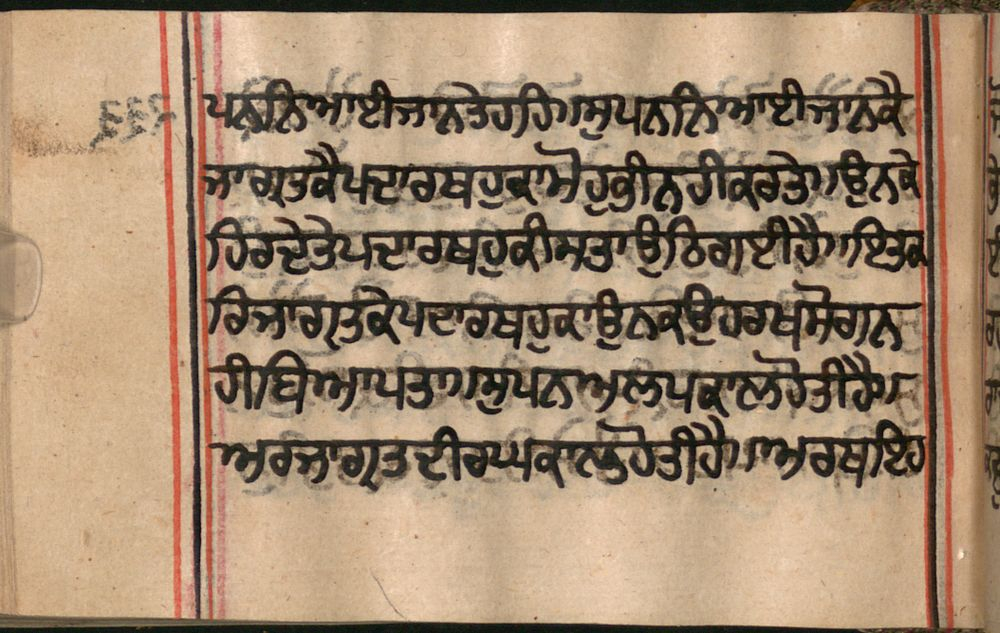 ਪਨਨਿਆਈਜਾਨਤੇਹਹਿ॥ਸੁਪਨਨਿਆਈਜਾਨਕੈ
ਜਾਗ੍ਰਤਕੈਪਦਾਰਥਹੁਕਾਮੋਹੁਕੁੀਨਹੀਕਰਤੇ॥ਉਨਕੇ
ਹਿਰਦੇਤੇਪਦਾਰਥਹੁਕੀਸਤਾਉਠਿਗਈਹੈ॥ਇਤਕ
ਰਿਜਾਗ੍ਰਤਕੇਪਦਾਰਥਹੁਕਾਉਨਕਉਹਰਖਸੋਗਨ
ਹੀਬਿਆਪਤਾ॥ਸੁਪਨਅਲਪਕਾਲਹੋਤੀਹੈ॥
ਅਰਜਾਗ੍ਰਤਦੀਰਘਕਾਲਹੋਤੀਹੈ॥ਅਰਥਇਹ